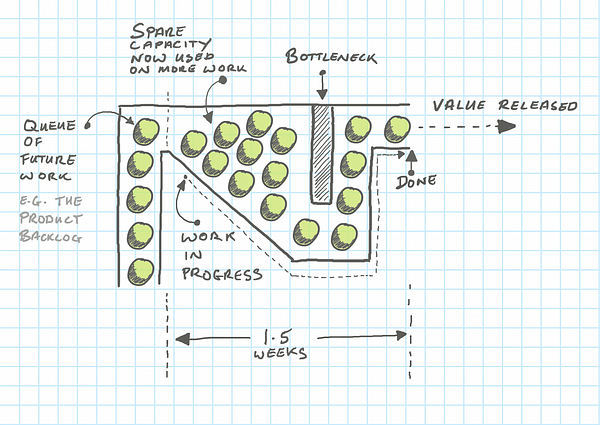 SPARE
CAPACITY
NOW USED
ON MORE WORK
BOTTLENECK
VALUE RELEASED
QUEUE
OF
FUTURE
WORK
E.G. THE
PRODUCT
BACKLOG
DONE
WORK
IN
PROGRESS
1.5
WEEKS